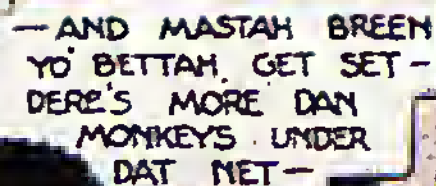 —AND MASTAH BREEN
YO' BETTAH, GET SET—
DERE'S MORE DAN
MONKEYS UNDER
DAT NET—